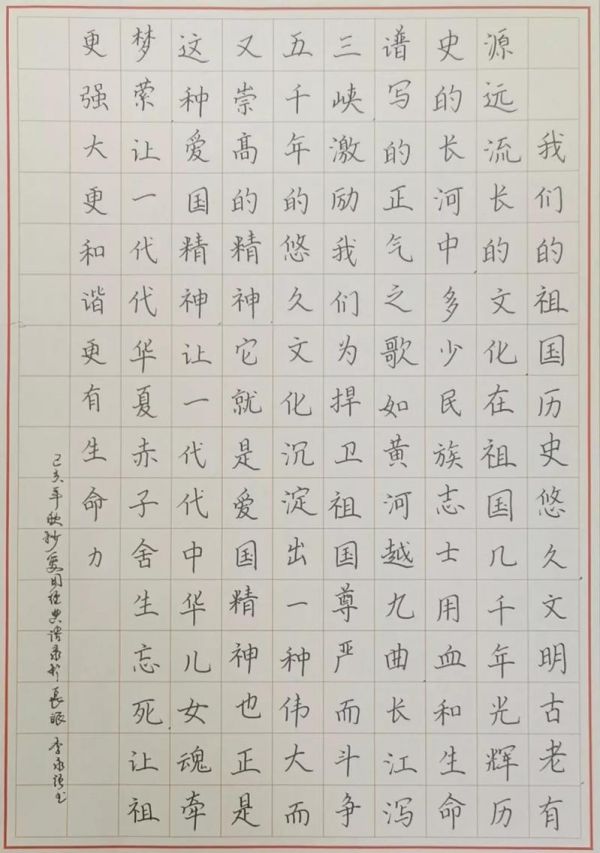 我们的祖国历史悠久文明古老有
源远流长的文化在祖国几千年光辉历
史的长河中多少民族志士用血和生命
谱写的正气之歌如黄河越九曲长江泻
三峡激励我们为捍卫祖国尊严而斗争
五千年的悠久文化沉淀出一种伟大而
又崇高的精神它就是爱国精神也正是
这种爱国精神让一代代中华儿女魂牵
梦萦让一代代华夏赤子舍生忘死让祖
更强大更和谐更有生命力
己亥年秋抄爱国经典语录於長垣 李永书